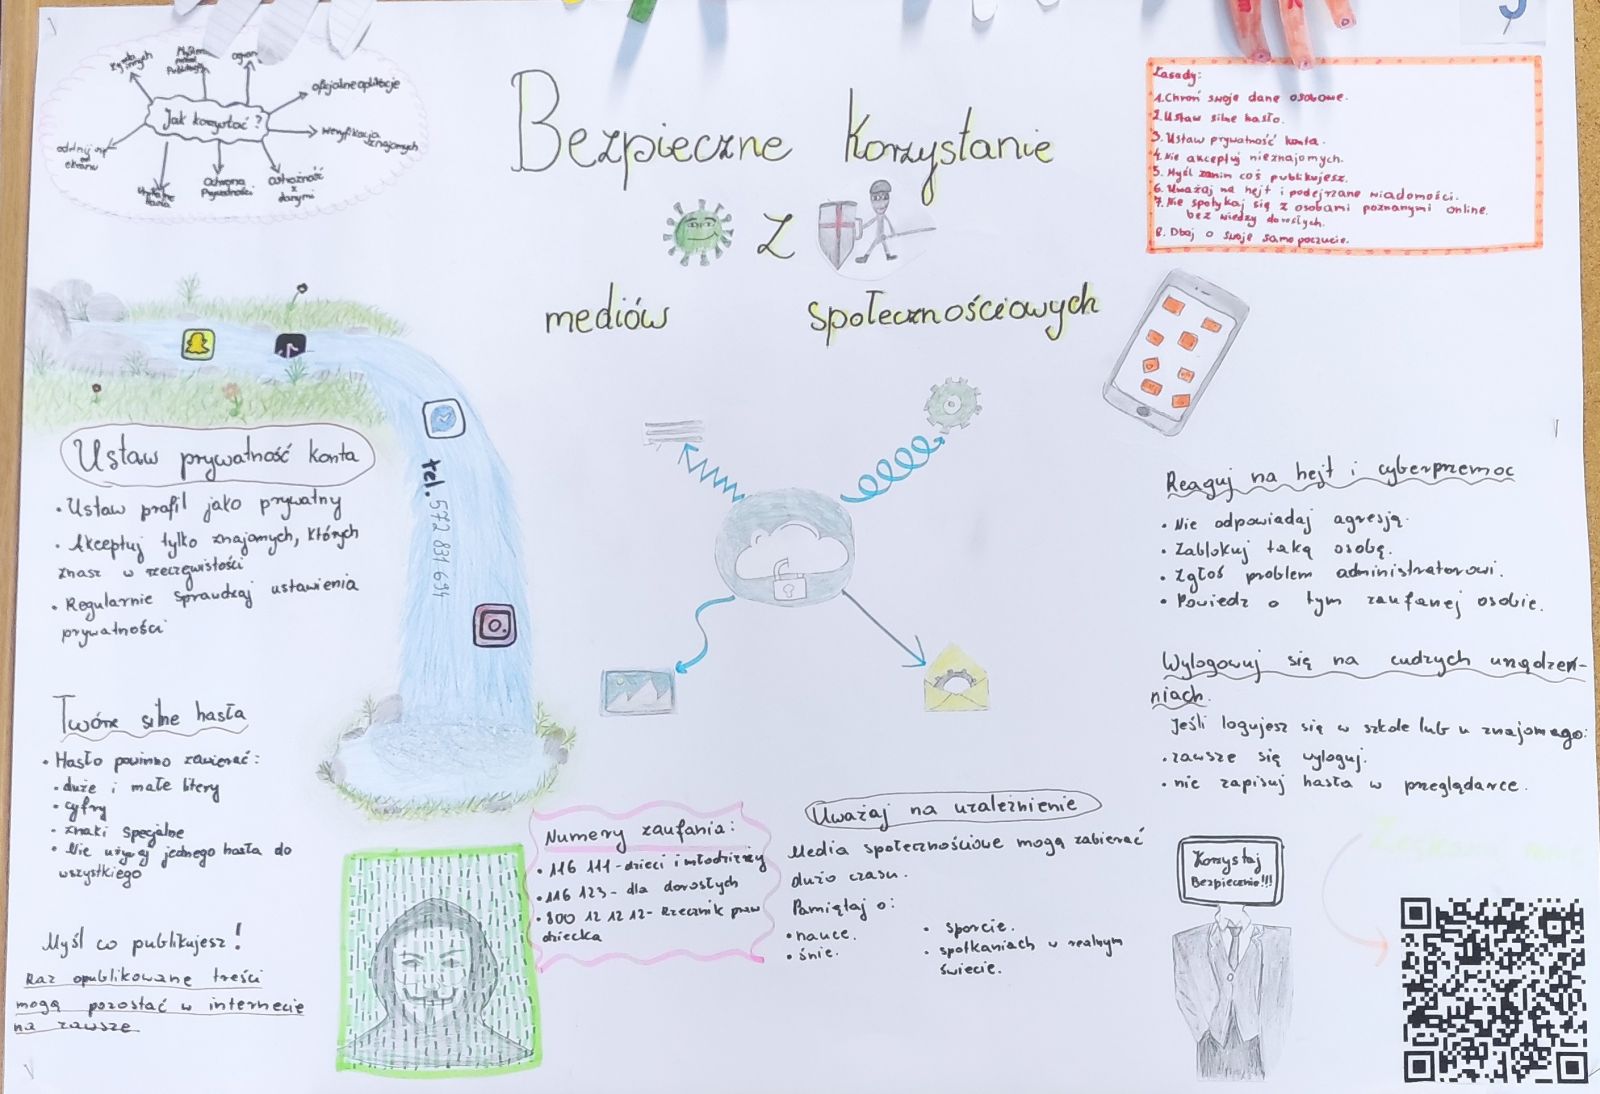 Jak korzystać?
oficjalne aplikacje
weryfikacja znajomych
ostrożność z danymi
Ochrona Prywatności
od ekranu
Bezpieczne Korzystanie
z
mediów społecznościowych
Zasady:
1. Chroń swoje dane osobowe.
2. Ustaw silne hasło.
3. Ustaw prywatność konta.
4. Nie akceptuj nieznajomych.
5. Myśl zanim coś publikujesz.
6. Uważaj na hejt i podejrzane wiadomości.
7. Nie spotykaj się z osobami poznanymi online.
bez wiedzy dorosłych.
8. Dbaj o swoje samopoczucie.
Ustaw prywatność konta
• Ustaw profil jako prywatny
• Akceptuj tylko znajomych, których
znasz w rzeczywistości
• Regularnie sprawdzaj ustawienia
prywatności
tel. 572 831 694
Twórz silne hasła
• Hasło powinno zawierać:
• duże i małe litery
• cyfry
• znaki specjalne
• Nie używaj jednego hasła do
wszystkiego
Myśl co publikujesz!
Raz opublikowane treści
mogą pozostać w internecie
na zawsze
Numery zaufania:
• 116 111 - dzieci i młodzieży
• 116 123 - dla dorosłych
• 800 12 12 12 - Rzecznik praw
dziecka
Uważaj na uzależnienie
Media społecznościowe mogą zabierać
dużo czasu.
Pamiętaj o:
• nauce.
• śnie.
• sporcie.
• spotkaniach w realnym
świecie.
Reaguj na hejt i cyberprzemoc
• Nie odpowiadaj agresją.
• Zablokuj taką osobę.
• Zgłoś problem administratorowi.
• Powiedz o tym zaufanej osobie.
Wylogowuj się na cudzych urządzeń-
niach.
Jeśli logujesz się w szkole lub u znajomego:
• zawsze się wyloguj.
• nie zapisuj hasła w przeglądarce.
Korzystaj
Bezpiecznie!!!